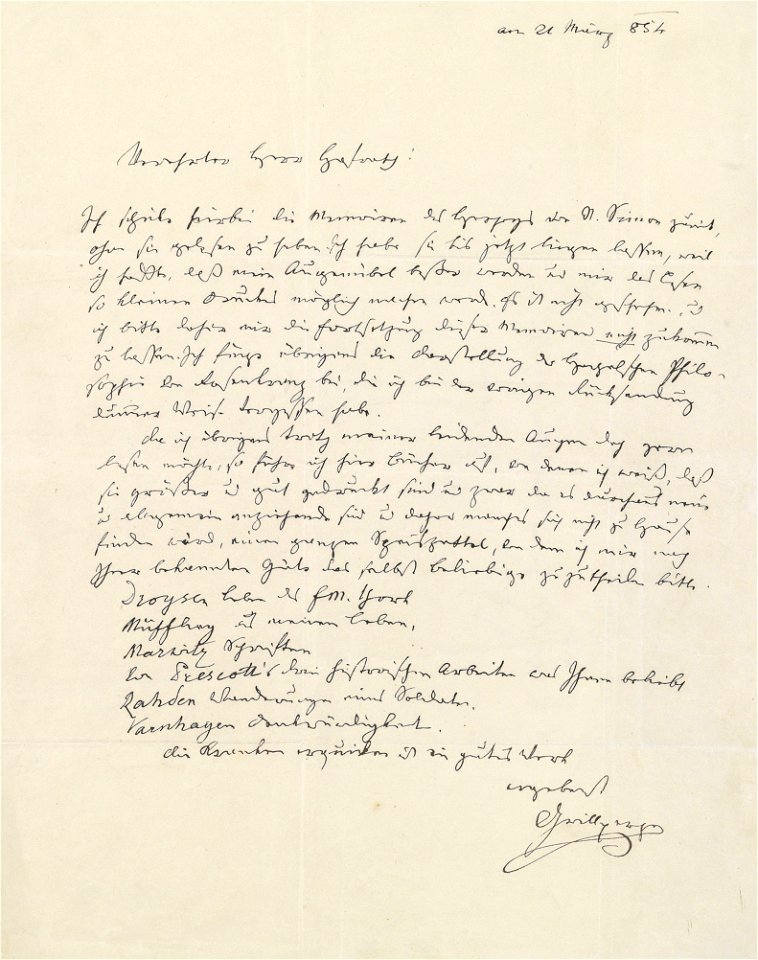 am 21 März 854
Verehrter Herr Hofrath!
Ich schicke hierbei die Memoiren des Herzogs von St. Simon zurück,
ohne sie gelesen zu haben. Ich habe sie bis jetzt liegen lassen, weil
ich hoffte, daß mein Augenübel besser werden u mir das Lesen
so kleinen Druckes möglich machen werde. Es ist nicht geschehen, u
ich bitte daher mir die Fortsetzung dieser Memoiren nicht zukommen
zu lassen. Ich füge übrigens die Darstellung der Hegelschen Philo-
sophie von Rosenkranz bei, die ich bei der vorigen Rücksendung
dummer Weise vergessen habe.
Da ich übrigens trotz meiner leidenden Augen doch gern
lesen möchte, so führe ich hier Bücher auf, von denen ich weiß, daß
sie größer u gut gedruckt sind u zwar da es durchaus neue
u allgemein anziehende sind u daher manches sich nicht zu Hause
finden wird, einen ganzen Speiszettel, von dem ich mir nach
Ihrer bekannten Güte das selbst beliebige zuzutheilen bitte.
Droysen Leben des FM. York
Müffling aus meinem Leben,
Marwitz Schriften
Von Prescott's drei historischen Arbeiten was Ihnen beliebt
Rahden Wanderungen eines Soldaten.
Varnhagen Denkwürdigkeit.
Die Kranken erquicken ist ein gutes Werk
ergebenst
Grillparzer